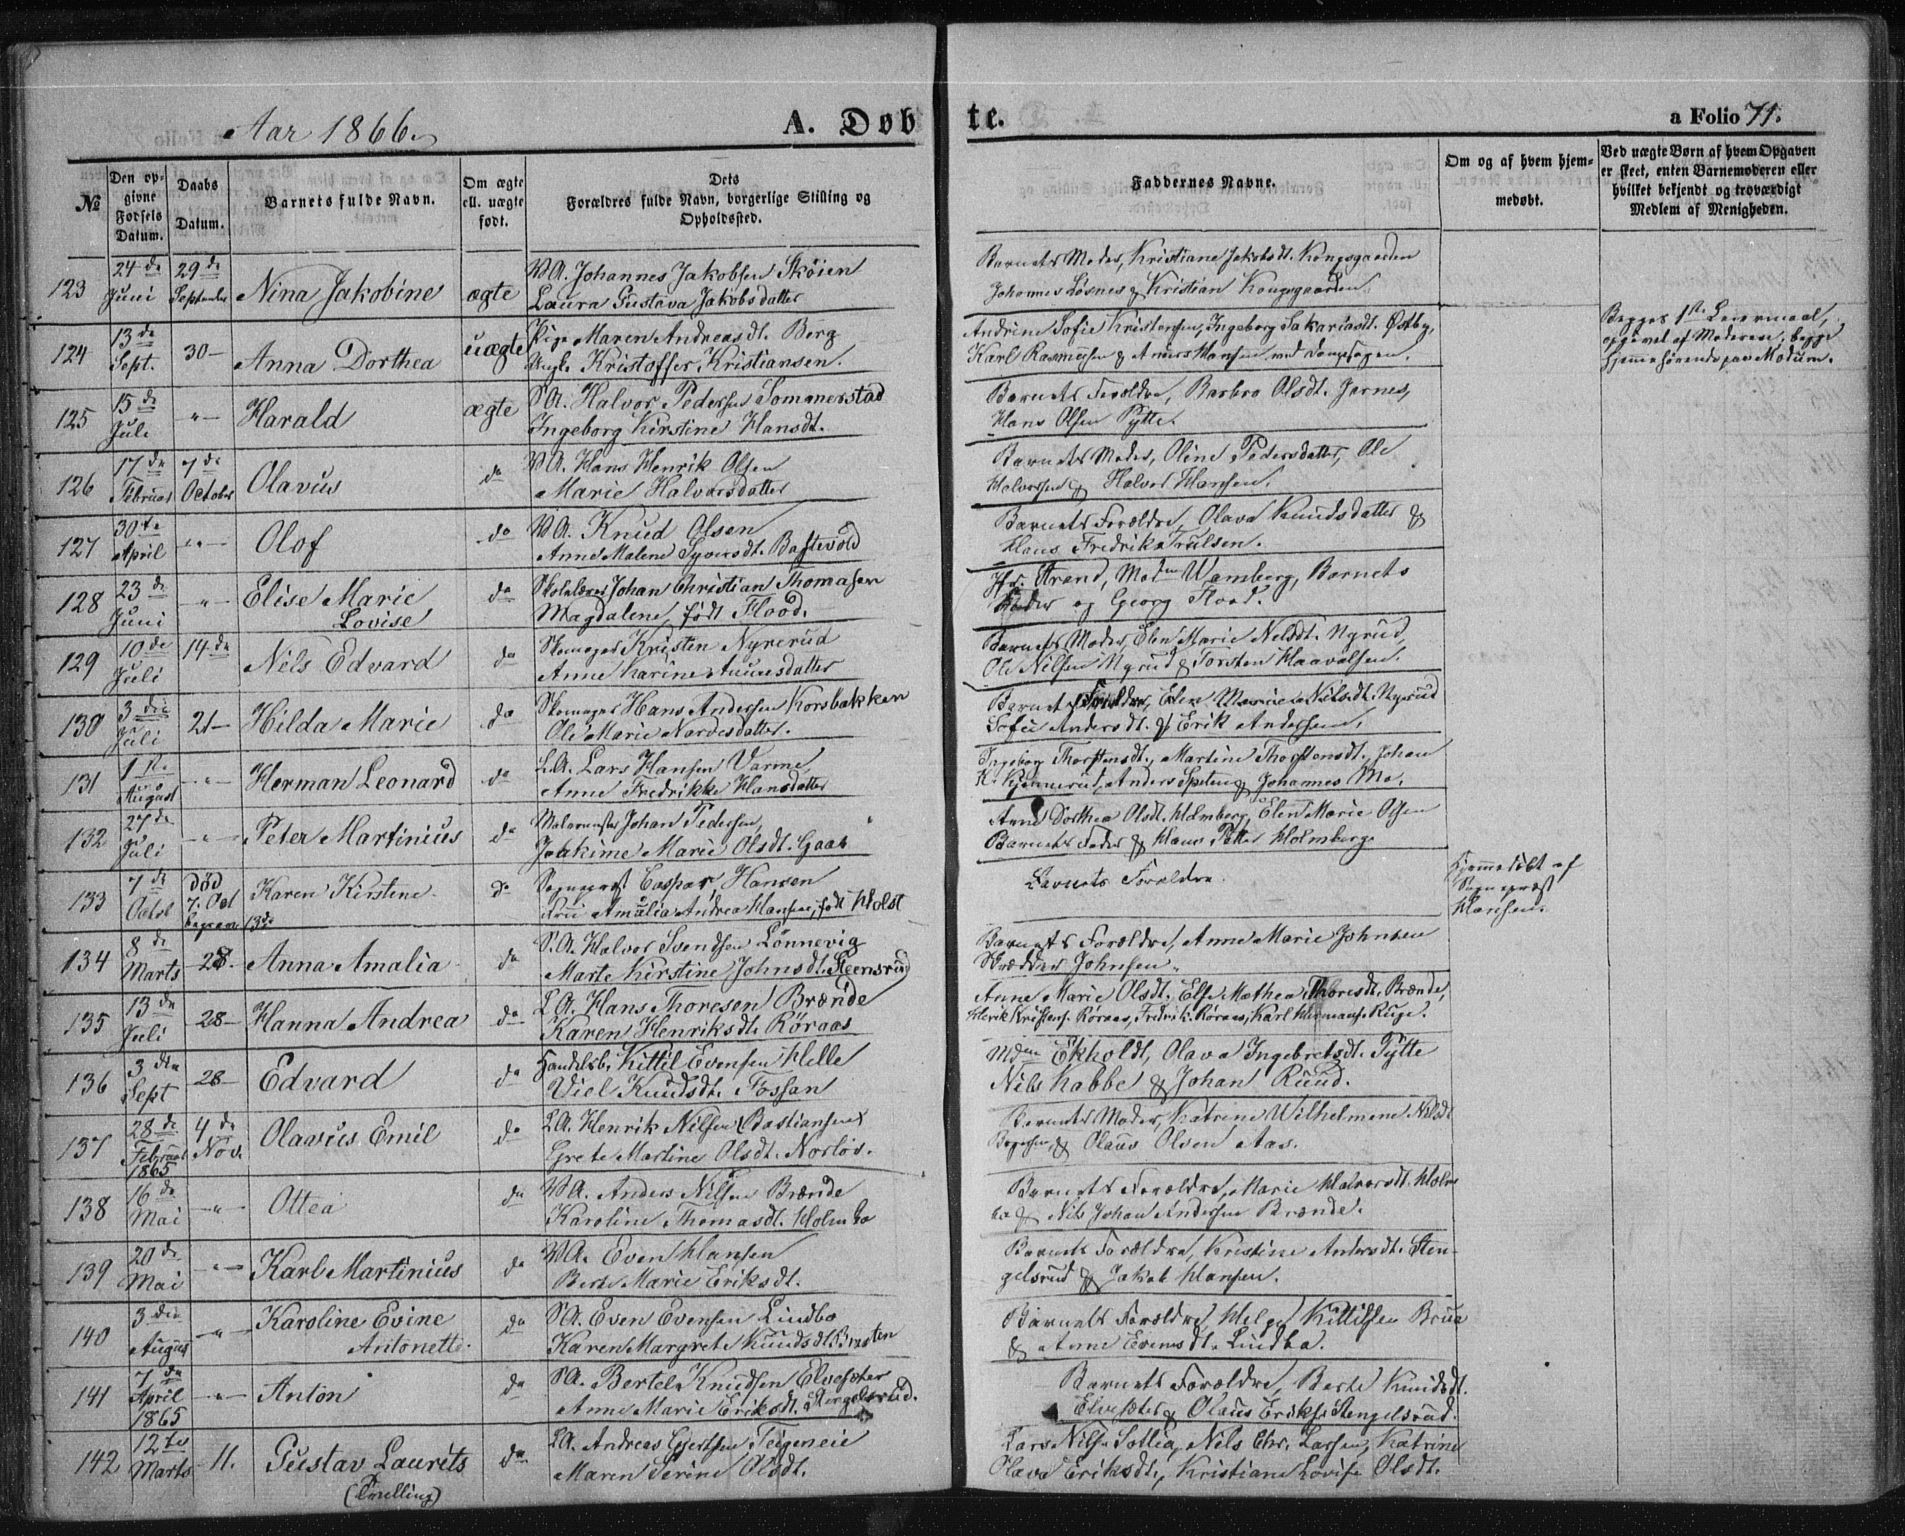 Aar 1866.
A. Døbte.
a Folio 71.
№
Den opgivne Fødsels Datum.
Daabs Datum.
Barnets fulde Navn.
Om ægte ell. uægte født.
Dets Forældres fulde Navn, borgerlige Stilling og Opholdssted.
Faddernes Navne.
Om og af hvem hjemmedøbt.
Ved uægte Børn af hvem Opgaven er skeet, enten Barnemoderen eller hvilket bekjendt og troværdigt Medlem af Menigheden.
123 24de Juni 29de September Nina Jakobine ægte
Johannes Jakobsen Skøien
Laura Gustava Jakobsdatter
Barnets Moder, Kristiane Jakobsdt. Kongsgaarden
Johannes Løsnes & Kristian Kongsgaarden.
124 13de Sept. 30 — Anna Dorthea uægte
Pige Maren Andreasdt. Berg
Ungk. Kristoffer Kristiansen.
Andrine Sofie Kristensen, Ingeborg Sakariasdt. Østby,
Karl Rasmussen & Anders Hansen ved Dampsagen.
Begges 1ste Leiermaal,
opgivet af Moderen, begge
hjemmehørende paa Modum.
125 15de Juli " Harald ægte
Halvor Pedersen Sommerstad
Ingeborg Kirstine Hansdt.
Barnets Forældre, Barbro Olsdt. Jernes,
Hans Olsen Pytte.
126 17de Februar 7de October Olavus do
Hans Henrik Olsen
Marie Halvorsdatter
Barnets Moder, Oline Pedersdatter, Ole
Halvorsen & Halvor Hansen.
127 30te April " Olof do
Knud Olsen
Anne Malene Syversdt. Bastevold
Barnets Forældre, Olava Knudsdatter &
Hans Fredrik Trulsen.
128 23de Juni " Elise Marie Lovise do
Skolelærer Johan Christian Thomasen
Magdalene, født Flood.
Hr. Strand, Mdm Wamberg, Barnets
Fader og Georg Flood.
129 10de Juli 14de Nils Edvard do
Skomager Kristen Nyrerud
Anne Karine
Barnets Moder, Elen Marie Nelsdt. Nyrud,
Ole Nilsen Nyrud & Torsten Haavalsen.
130 3die Juli 21 — Hilda Marie do
Skomager Hans Andersen Korsbakken
Oli Marie Nardesdatter.
Barnets Forældre, Elen Marie Nilsdt. Nyrud
Sofie Andersdt. & Erik Andersen.
131 1ste August " Herman Leonard do
L.A. Lars Hansen Varme,
Anne Fredrikke Hansdatter
Ingeborg Thorstensdt., Martine Thorstensdt., Johan
K. Kjennerud, Anders & Johannes Mo.
132 27de Juli " Peter Martinius do
Johan Pedersen,
Joakime Marie Olsdt. Gaas
Anne Dorthea Olsdt. Holmberg, Elen Marie Olsen
Barnets Fader & Hans Petter Holmberg
133 7de Octob død 7. Oct begraven 13de Karen Kirstine do
Sognepræst Caspar Hansen
Fru Amalia Andrea Hansen, født Holst
Barnets Forældre.
Hjemmedøbt af
Sognepræst
Hansen.
134 8de Marts 28. Anna Amalia do
Halvor Svendsen Lønnevig
Marte Kirstine Johnsdt. Steensrud
Barnets Forældre, Anne Marie Johnsen
Skrædder Johnsen.
135 13de Juli 28 — Hanna Andrea do
L.A. Hans Thoresen Brænde
Karen Henriksdt. Røraas
Anne Marie Olsdt., Else Mathea Thoresdt. Brænde,
Henrik Kristens. Røraas, Fredrik Røraas, Karl Hermans. Ruge.
136 3die Sept 28 — Edvard do
Handelsb. Kittil Evensen Helle
Viel Knudsdt. Fossan
Mdm Ekholdt, Olava Ingebretsdt. Pytte
Nils Kabbe & Johan Ruud.
137 28de Februar 1865 4de Nov. Olavus Emil do
L.A. Henrik Nilsen (Bastiansen)
Grete Martine Olsdt. Norløs.
Barnets Moder, Katrine Wilhelmine Nilsdt
& Olaus Olsen Aas.
138 16de Mai " Ottea do
Anders Nilsen Brænde
Karoline Thomasdt. Holmbo
Barnets Forældre, Marie Halvorsdt. Holmbo
& Nils Johan Andersen Brænde.
139 20de Mai " Karl Martinius do
Even Hansen
Berte Marie Eriksdt.
Barnets Forældre, Kristine Andersdt. Stengelsrud
& Jakob Hansen.
140 3die August " Karoline Evine Antonette do
Even Evensen Lindbo
Karen Margrete Knudsdt. Braaten
Barnets Forældre, Helge Kittilsen Brua
& Anne Evensdt. Lindbo.
141 7de April 1865 " Anton do
Bertel Knudsen Elvesæter
Anne Marie Eriksdt. Stengelsrud.
Barnets Forældre, Berte Knudsdt.
Elvesæter & Olaus Eriks. Stengelsrud.
142 12te Marts 11. Gustav Laurits (Tvilling) do
L.A. Andreas Gjertsen Teigeneie
Maren Serine Olsdt.
Lars Nilsen Sollia, Nils Chr. Larsen, Katrine
Olava Eriksdt., Kristiane Lovise Olsdt.